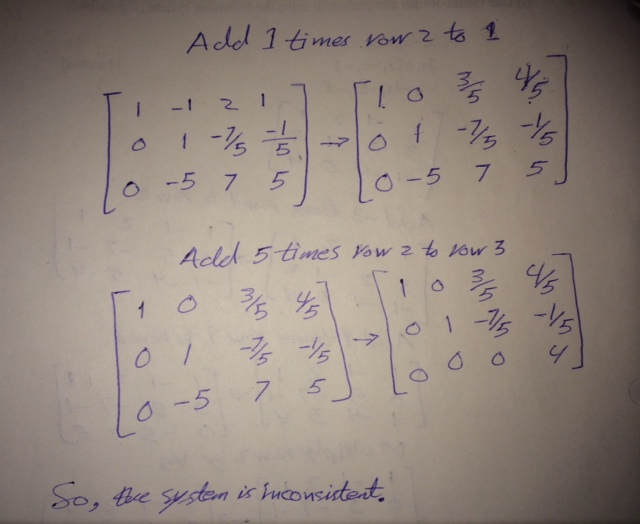 Add 1 times row 2 to 1
1 -1 2 1 → 1 0 3/5 4/5
0 1 -7/5 -1/5 0 1 -7/5 -1/5
0 -5 7 5 0 -5 7 5
Add 5 times row 2 to row 3
1 0 3/5 4/5 → 1 0 3/5 4/5
0 1 -7/5 -1/5 0 1 -7/5 -1/5
0 -5 7 5 0 0 0 4
So, the system is inconsistent.